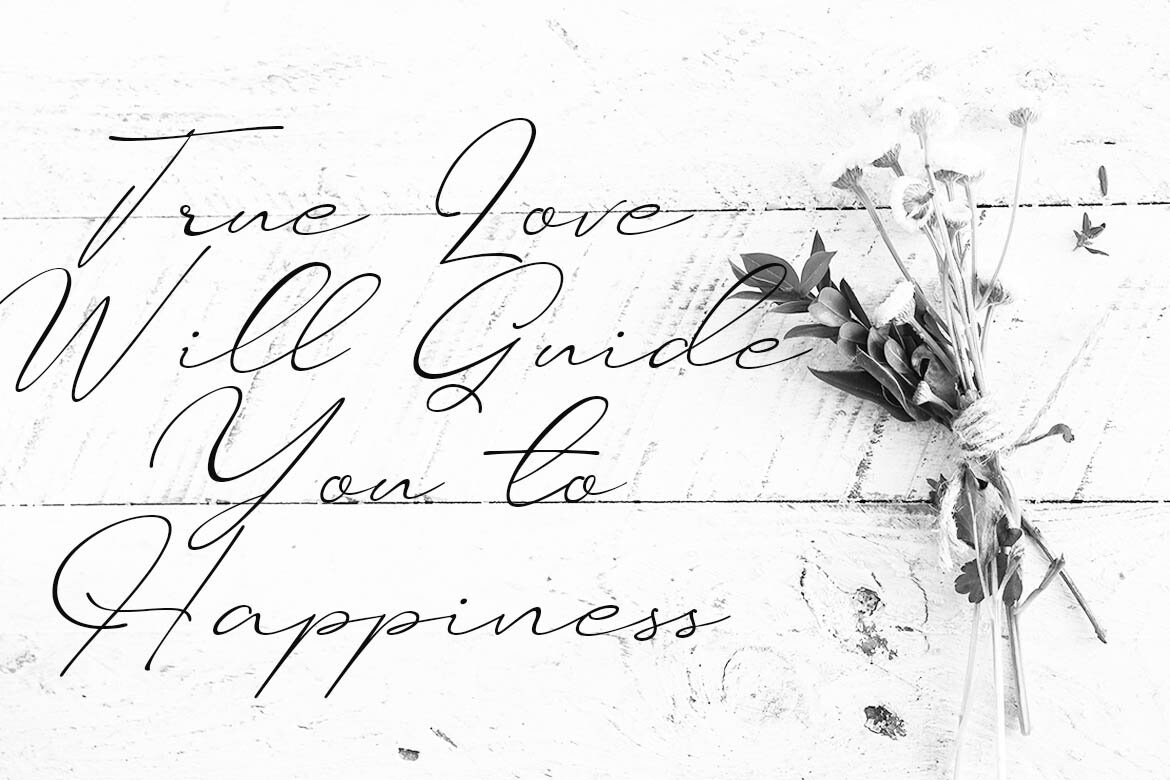 True Love
Will Guide
You to
Happiness